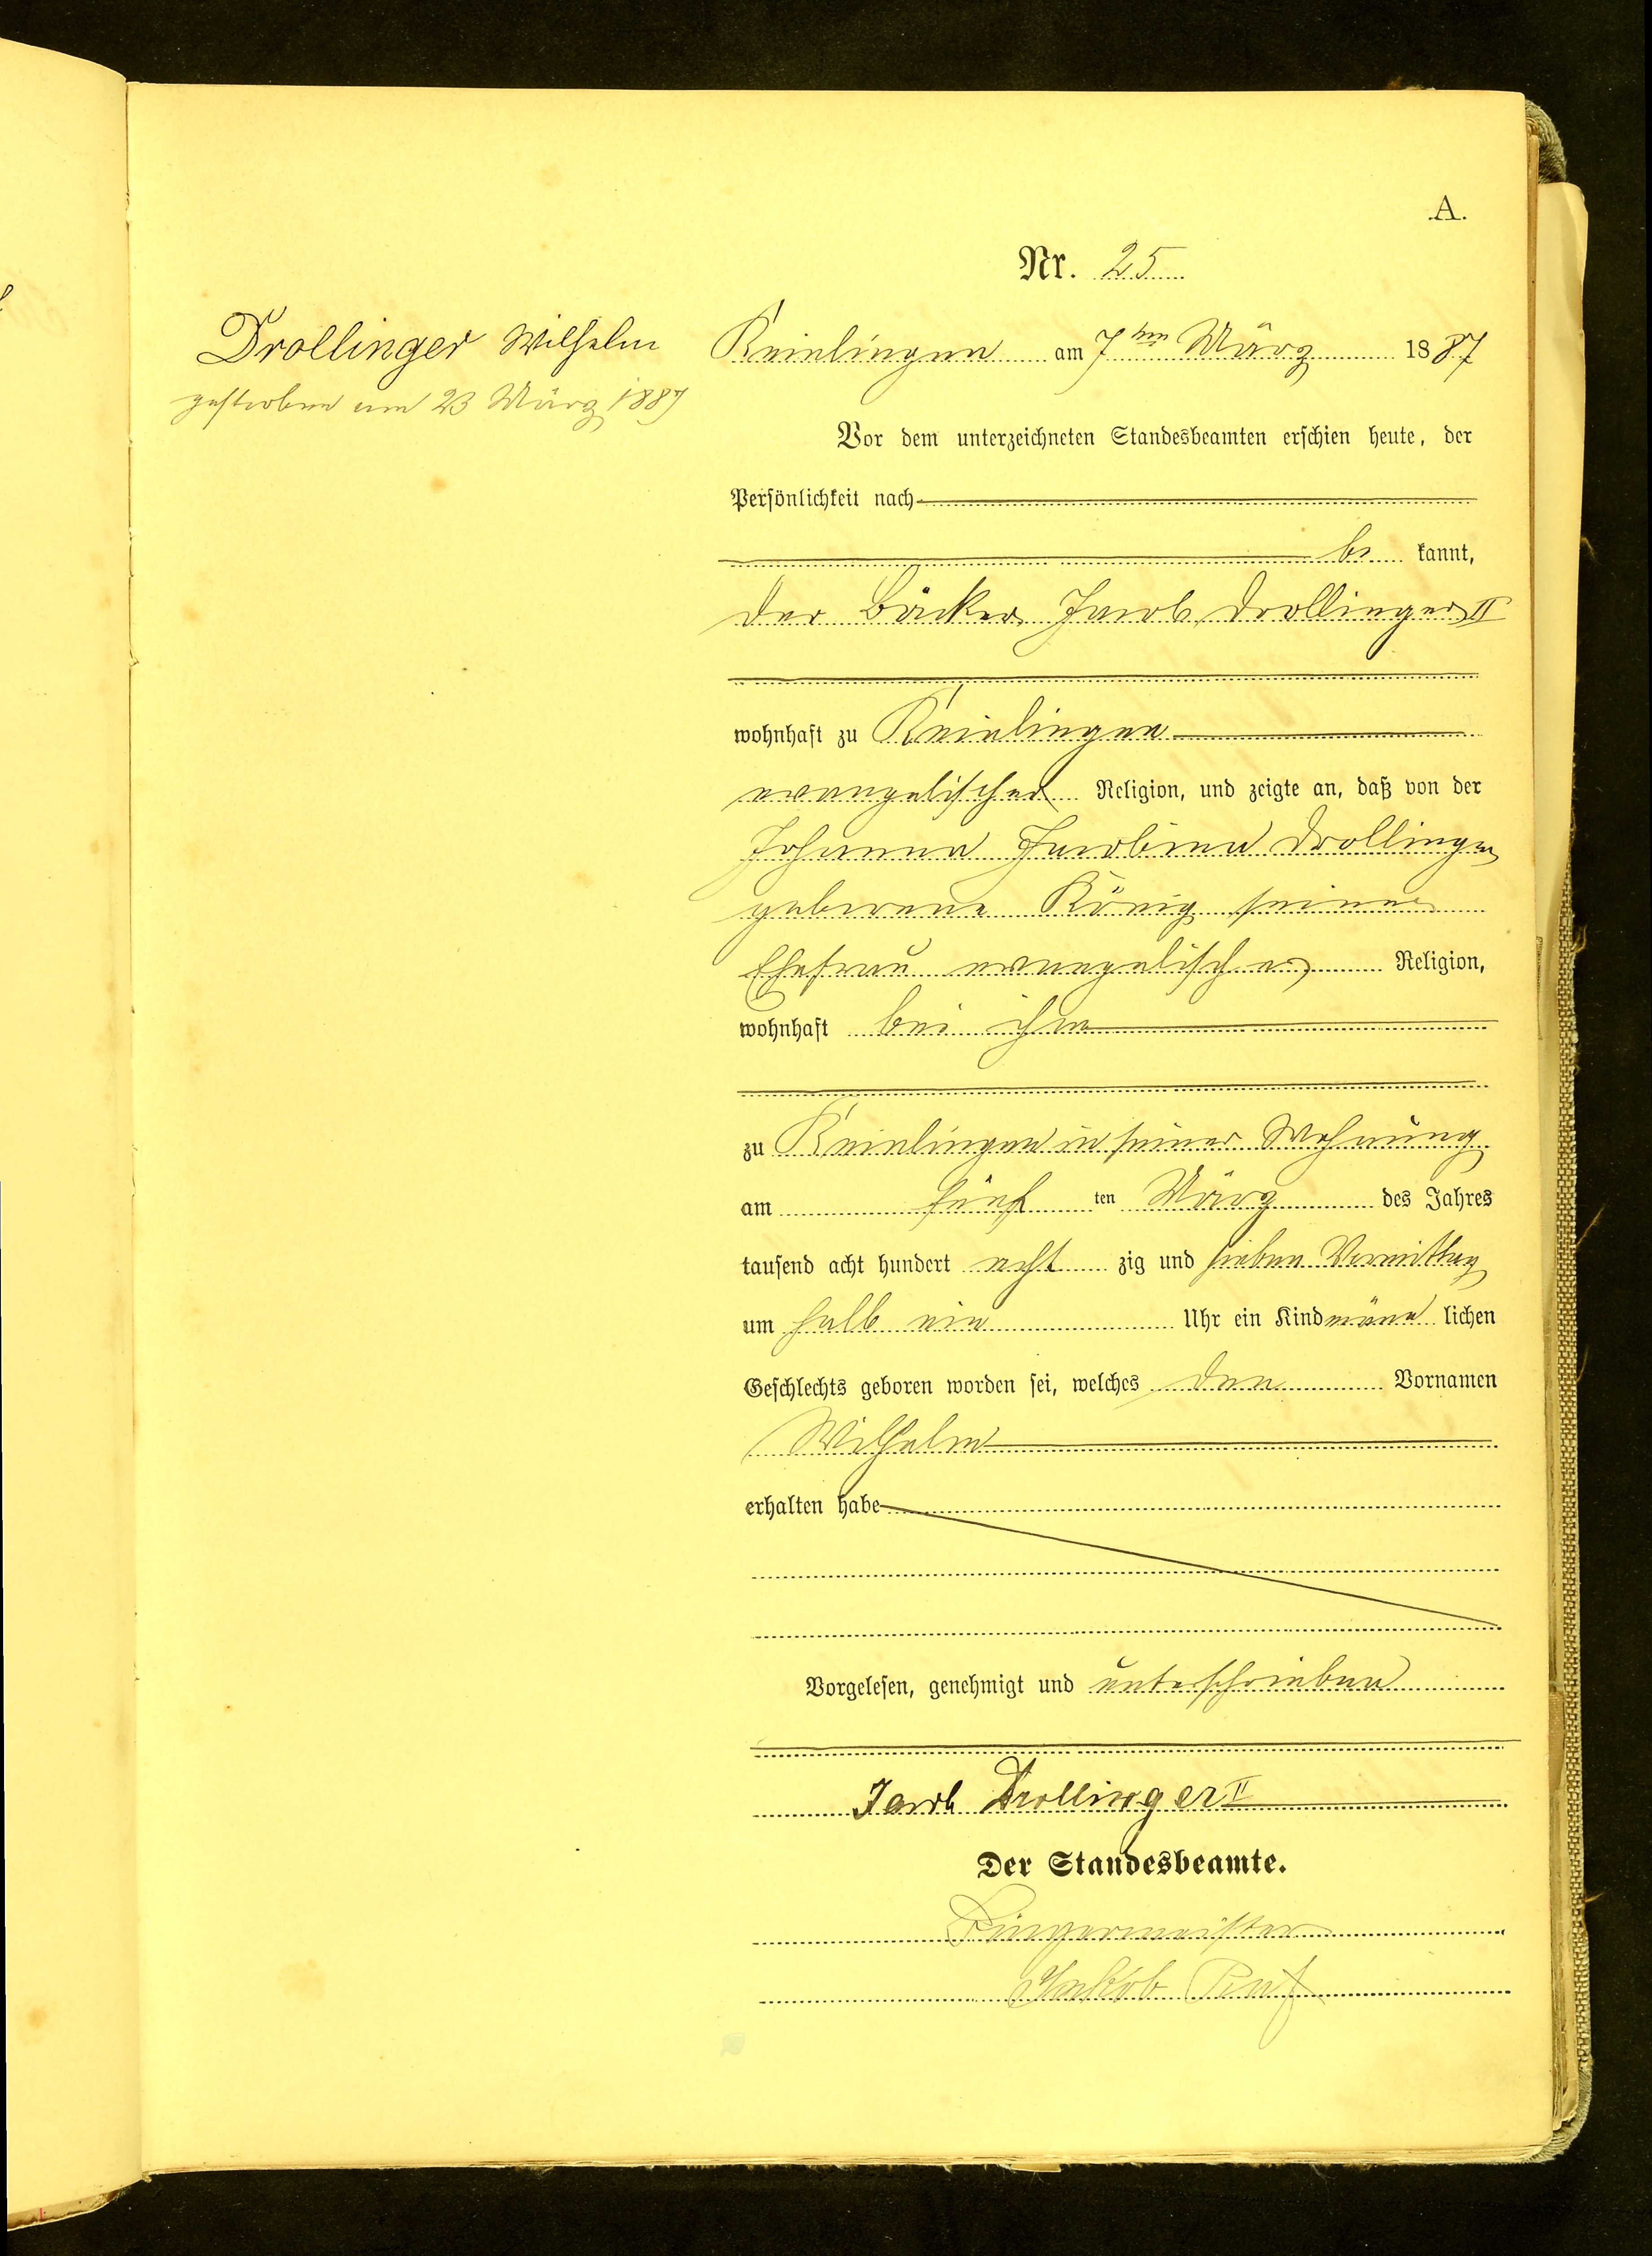 A.
Nr. 25
Drollinger Wilhelm
gestorben am 23 März 1887
Knielingen am 7ten März 1887
Vor dem unterzeichneten Standesbeamten erschien heute, der
Persönlichkeit nach
be kannt,
der Bäcker Jacob Drollinger II
wohnhaft zu Knielingen
evangelischer Religion, und zeigte an, daß von der
Johanna Jacobina Drollinger
geborene König seiner
Ehefrau evangelischer Religion,
wohnhaft bei ihm
zu Knielingen in seiner Wohnung
am fünf ten März des Jahres
tausend acht hundert acht zig und sieben Vormittag
um halb ein Uhr ein Kind männ lichen
Geschlechts geboren worden sei, welches den Vornamen
Wilhelm
erhalten habe
Vorgelesen, genehmigt und unterschrieben
Jacob Drollinger II
Der Standesbeamte.
Bürgermeister
Jakob